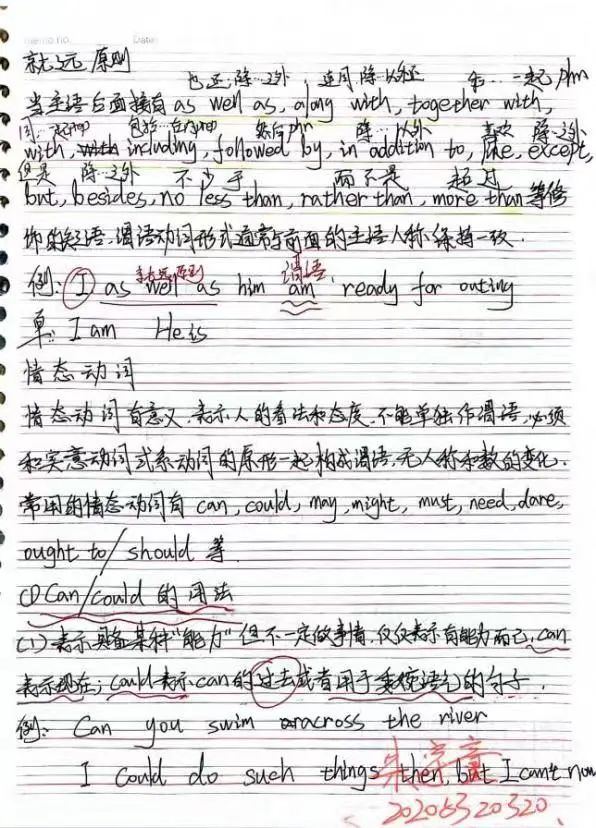 memo no. Date
就远原则
也还;除…之外 连同,除…以外 和…一起
当主语后面接有 as well as, along with, together with,
包括…在内 除…以外 喜欢 除…之外
with, with including, followed by, in addition to, like, except,
但是 除…之外 不少于 而不是 超过
but, besides, no less than, rather than, more than 等修
饰的短语,谓语动词形式通常与前面的主语人称保持一致.
就远原则 谓语
例: I as well as him am ready for outing
单: I am He is
情态动词
情态动词有意义,表示人的看法和态度,不能单独作谓语,必须
和实意动词或系动词的原形一起构成谓语,无人称和数的变化.
常用的情态动词有 can, could, may, might, must, need, dare,
ought to/should 等
① Can/could 的用法
(1) 表示具备某种"能力"但不一定做事情,仅仅表示有能力而已, can
表示现在; could 表示 can 的过去或者用于委婉语气的句子.
例: Can you swim across the river
I could do such things then, but I can't now
20206320320